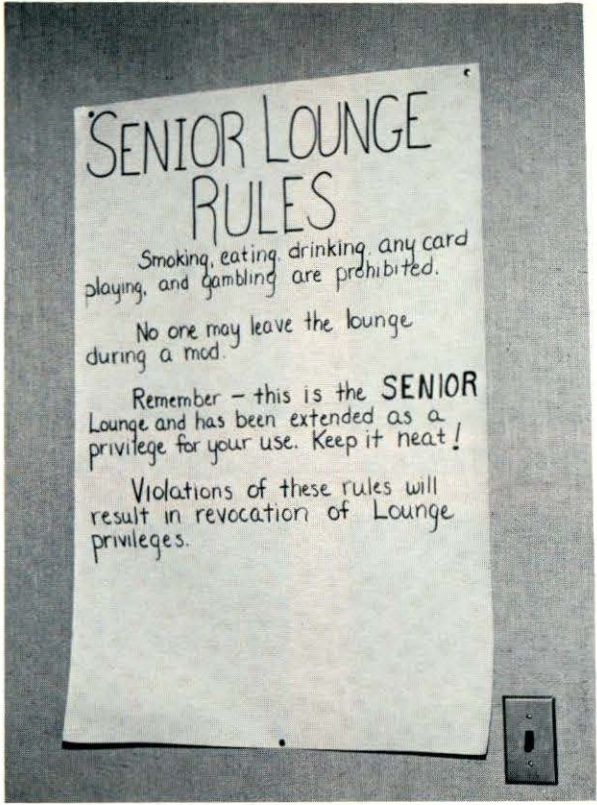 SENIOR LOUNGE
RULES
Smoking, eating, drinking, any card
playing, and gambling are prohibited.
No one may leave the lounge
during a mod.
Remember – this is the SENIOR
Lounge and has been extended as a
privilege for your use. Keep it neat!
Violations of these rules will
result in revocation of Lounge
privileges.